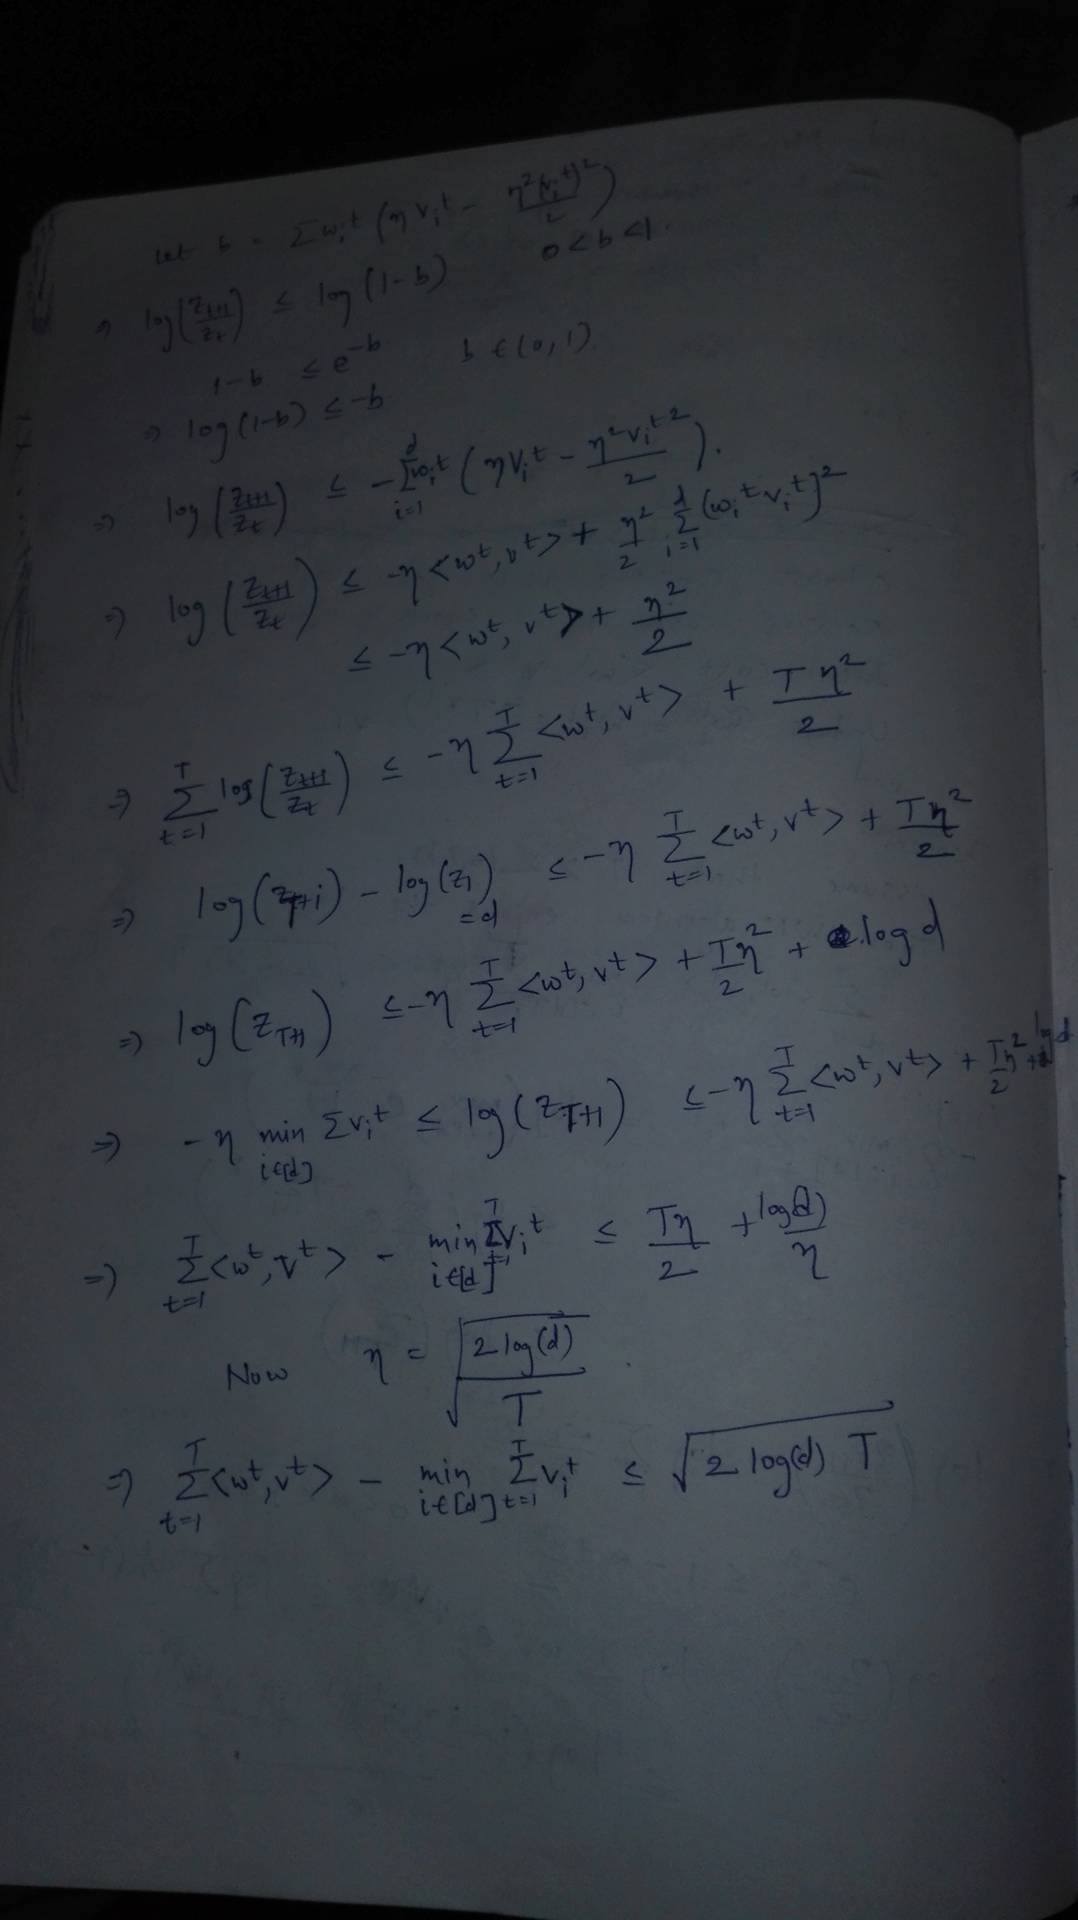 let b = Σ wᵢᵗ (η vᵢᵗ - η²(vᵢᵗ)²/2)
⇒ log(Z_{t+1}/Z_t) ≤ log(1-b)   0<b<1.
1-b ≤ e^{-b}   b ∈ (0,1).
⇒ log(1-b) ≤ -b
⇒ log(Z_{t+1}/Z_t) ≤ -Σ_{i=1}^{d} wᵢᵗ (η vᵢᵗ - η² vᵢᵗ²/2).
⇒ log(Z_{t+1}/Z_t) ≤ -η <wᵗ, vᵗ> + η²/2 Σ_{i=1}^{d} (wᵢᵗ vᵢᵗ)²
≤ -η <wᵗ, vᵗ> + η²/2
⇒ Σ_{t=1}^{T} log(Z_{t+1}/Z_t) ≤ -η Σ_{t=1}^{T} <wᵗ, vᵗ> + Tη²/2
⇒ log(Z_{T+1}) - log(Z₁) ≤ -η Σ_{t=1}^{T} <wᵗ, vᵗ> + Tη²/2
=d
⇒ log(Z_{T+1}) ≤ -η Σ_{t=1}^{T} <wᵗ, vᵗ> + Tη²/2 + log d
⇒ -η min_{i∈[d]} Σvᵢᵗ ≤ log(Z_{T+1}) ≤ -η Σ_{t=1}^{T} <wᵗ, vᵗ> + Tη²/2 + log d
⇒ Σ_{t=1}^{T} <wᵗ, vᵗ> - min_{i∈[d]} Σ_{t=1}^{T} vᵢᵗ ≤ Tη/2 + log(d)/η
Now η = √(2 log(d)/T)
⇒ Σ_{t=1}^{T} <wᵗ, vᵗ> - min_{i∈[d]} Σ_{t=1}^{T} vᵢᵗ ≤ √(2 log(d) T)